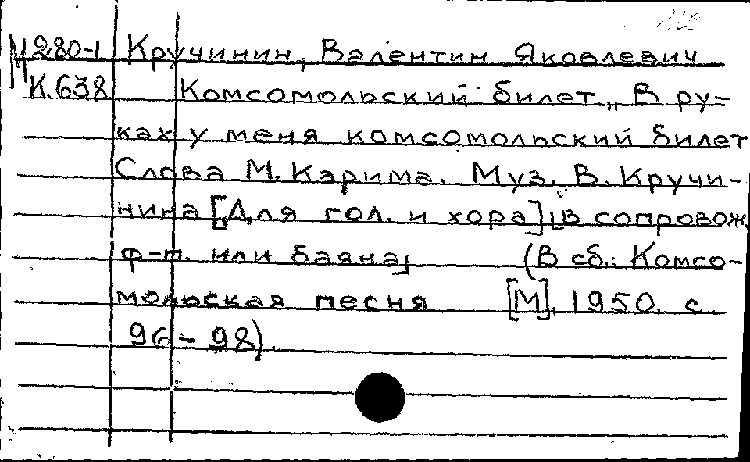 М280-1 Кручинин, Валентин Яковлевич
К.638 Комсомольский билет „В ру-
ках у меня комсомольский билет
Слова М. Карима. Муз. В. Кручи-
нина [Для гол. и хора] в сопровож.
ф-п. или баяна, (В сб.: Комсо-
мольская песня [М], 1950. с.
96-98).